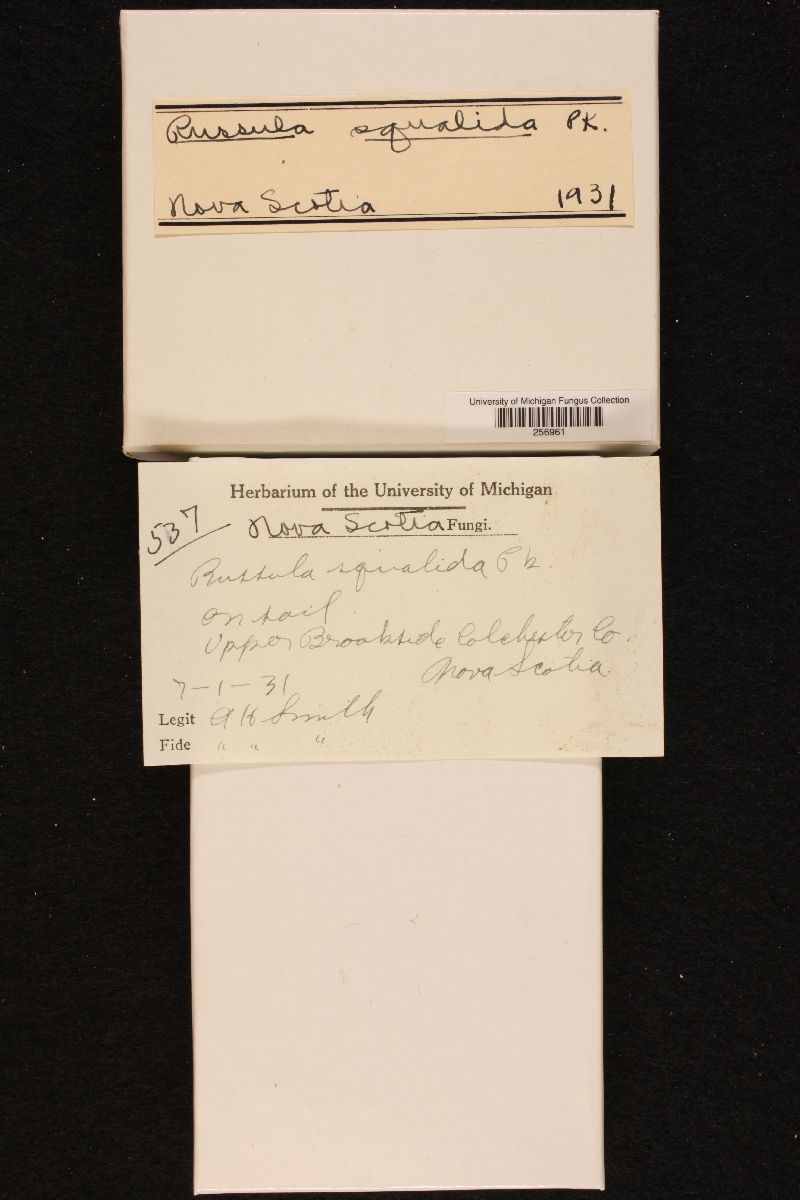 Russula squalida PK.
Nova Scotia 1931
University of Michigan Fungus Collection
256961
Herbarium of the University of Michigan
537 Nova Scotia Fungi.
Russula squalida Pk.
on soil.
Upper Brookside Colchester Co.
Nova Scotia.
7-1-31
Legit A H Smith
Fide " " "